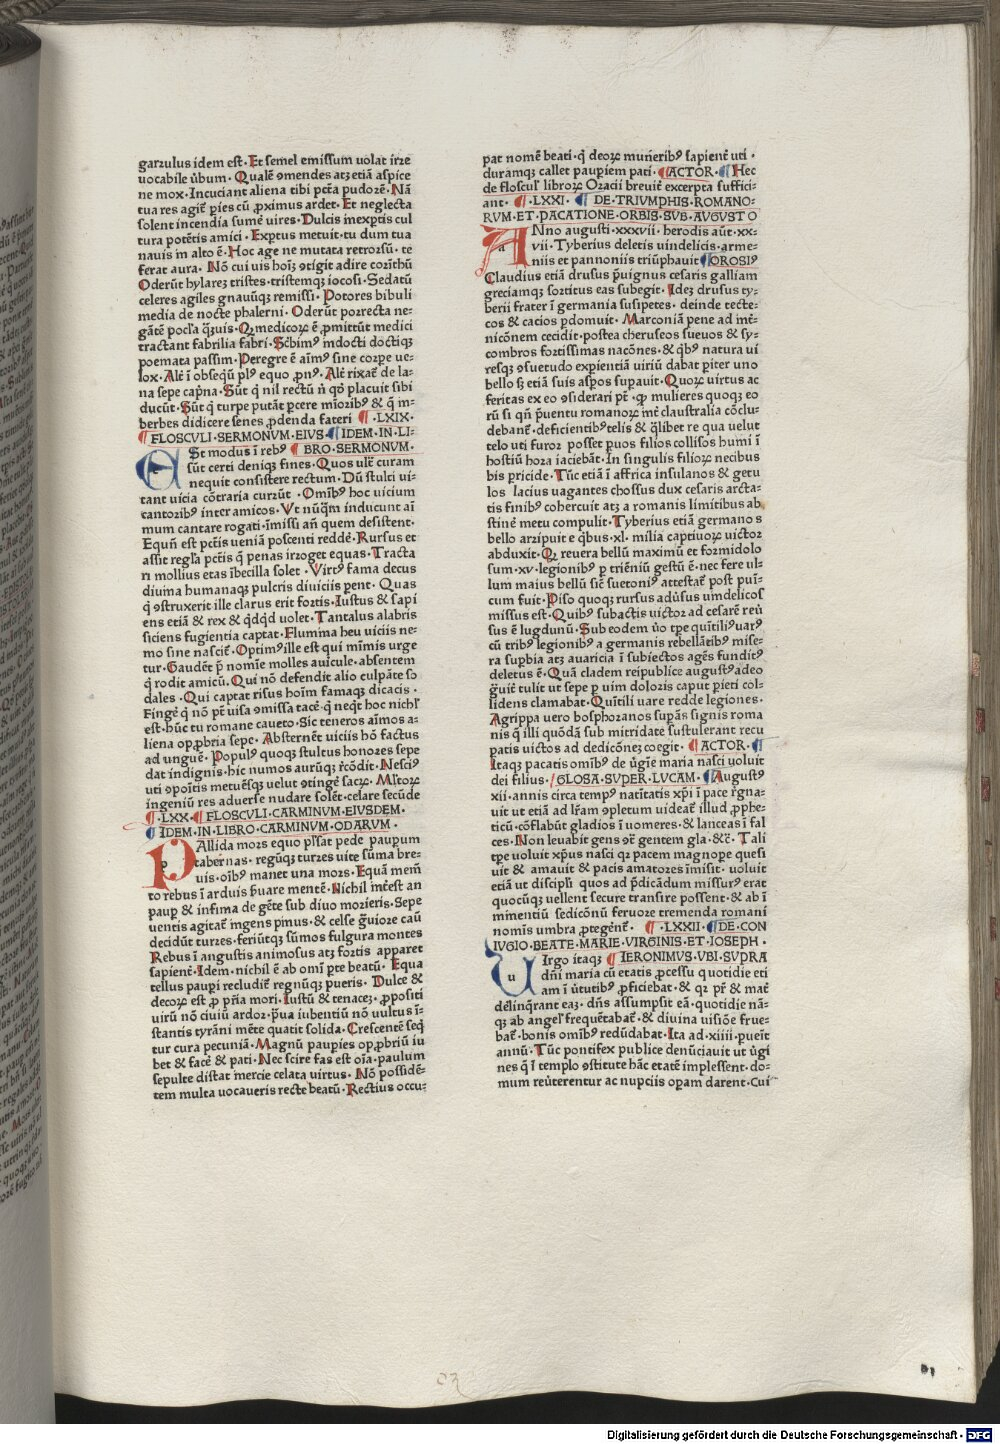 garrulus idem est · Et semel emissum uolat irre
uocabile ūbum · Qualē ꝯmendes atqꝫ etiā aspice
ne mox · Incuciant aliena tibi pctā pudorē · Nā
tua res agiē pies cū ꝓximus ardet · Et neglecta
solent incendia sumē uires · Dulcis inexptis cul
tura potētis amici · Exptus metuit · tu dum tua
nauis in alto ē · Hoc age ne mutata retrorsū · te
ferat aura · Nō cui uis hoīꝫ ꝯtigit adire corīthū
Oderūt hylareꝫ tristes · tristemqꝫ iocosi · Sedatū
celeres agiles gnauūqꝫ remissi · Potores bibuli
media de nocte phalerni · Oderūt porrecta ne⸗
gātē pocła q̄ꝫuis · Qꝫ medicoꝝ ē ꝓmittūt medici
tractant fabrilia fabri · Scbim⁹ indocti doctiqꝫ
poemata passim · Peregre ē aīm⁹ sine corpe ue⸗
lox · Alt̄ ī obsequū pl⁹ equo ꝓn⁹ · Alt̄ rixat̄ de la⸗
na sepe cap̄na · Sūt q̄ nil rectū ñ qđ placuit sibi
ducūt · Sūt q̄ turpe putāt ꝑcere mīorib⁹ & q̄ in⸗
berbes didicere senes ꝓdenda fateri ¶ · LXIX ·
¶ FLOSCVLI · SERMONVM · EIVS ¶ IDEM · IN · LI⸗
Est modus ī reb⁹ ¶ BRO · SERMONVM ·
sūt certi deniqꝫ fines · Quos ultē curam
nequit consistere rectum · Dū stulti ui⸗
tant uicia cōtraria currūt · Omīb⁹ hoc uicium
cantorib⁹ inter amicos · Vt nūq̄m inducunt aī
mum cantare rogati · īmissi añ quem desistent ·
Equū est pctīs ueniā poscenti reddē · Rursus aī
assit regła pctīs q̄ penas irroget equas · Tracta
ri mollius etas ībecilla solet · Virt⁹ fama decus
diuina humanaqꝫ pulcris diuiciis pent · Quas
q̄ ꝯstruxerit ille clarus erit fortis · Iustus & sapi
ens etiā & rex & q̄dq̄d uolet · Tantalus alabris
siciens fugientia captat · Flumina heu uiciis ne⸗
mo sine nasciē · Optim⁹ ille est qui mīmis urge
tur · Gaudēt ꝑ nomīe molles auicule · absentem
q̄ rodit amicū · Qui nō defendit alio culpāte so
dales · Qui captat risus hoīm famaqꝫ dicacis ·
Fingē q̄ nō pt̄ uisa ꝯmissa tacē · q̄ neqt̄ hoc nichł
est · hūc tu romane caueto · Sic teneros aīmos a⸗
liena opprbria sepe · Absternēt uiciis hō factus
ad unguē · Popul⁹ quoqꝫ stultus honores sepe
dat indignis · hic numos aurūqꝫ rēcōdit · Nesci⁹
uti ꝯpoītis metuēsqꝫ uelut ꝯtingē sacꝝ · Mltoꝝ
ingeniū res aduerse nudare solēt · celare secūde
¶ · LXX · ¶ FLOSCVLI · CARMINVM · EIVSDEM ·
¶ IDEM · IN · LIBRO · CARMINVM · ODARVM ·
PAllida mors equo pl̄sat pede pauꝑum
tabernas · regūqꝫ turres uite sūma bre⸗
uis · oīb⁹ manet una mors · Equā mem̄
to rebus ī arduis ẜuare mentē · Nichil int̄est an
paup & infima de gēte sub diuo morieris · Sepe
uentis agitat̄ ingens pinus & celse g̃uiore caū
decidūt turres · feriūtqꝫ sūmos fulgura montes
Rebus ī angustis animosus atqꝫ fortis apparet
sapient̄ · Idem · nichil ē ab omī pte beatū · Equa
tellus paupi recludiē regnūqꝫ pueris · Dulce &
decoꝝ est ꝓ p̄ria mori · Iustū & tenaceꝫ ꝓpositi
uirū nō ciuiū ardor · p̄ua iubentiū nō uultus ī⸗
stantis tyrāni mēte quatit solida · Crescentē seq̄
tur cura pecuniā · Magnū paupies oppbriū iu
bet & facē & pati · Nec scire fas est oīa · paulum
sepulte distat inercie celata uirtus · Nō possidē⸗
tem multa uocaueris recte beatū · Rectius occu⸗
pat nomē beati · q̄ deoꝝ munerib⁹ sapient̄ uti ·
duramqꝫ callet pauꝑiem pati · ¶ ACTOR · ¶ Hec
de floscuł libroꝝ Oracii breuiť excerpta suffici⸗
ant · ¶ · LXXI · ¶ DE · TRIVMPHIS · ROMANO⸗
RVM · ET · PACATIONE · ORBIS · SVB · AVGVSTO
ANno augusti · xxxvii · herodis aūt · xx⸗
vii · Tyberius deletis uindelicis · arme⸗
niis et pannoniis triūphauit ¶ OROSI⁹
Claudius etiā drusus p̄uignus cesaris galliam
greciamqꝫ sortitus eas subegit · Ideꝫ drusus ty⸗
berii frater ī germania susipetes · deinde tecte⸗
cos & cacios pdomuit · Marconiā pene ad int̄⸗
nicōnem cecidit · postea cheruscos sueuos & sy⸗
combros fortissimas nacōnes · & q̄b⁹ natura ui
resqꝫ ꝯsuetudo expientiā uiriū dabat piter uno
bello sꝫ etiā suis aspos supauit · Quoꝝ uirtus ac
feritas ex eo ꝯsiderari pt̄ · ꝙ mulieres quoqꝫ eo
rū si qñ p̄uentu romanoꝝ int̄ claustralia cōclu⸗
debant̄ · deficientib⁹ telis & q̄libet re qua uelut
telo uti furor posset puos filios collisos humi ī
hostiū hora iaciebāt · In singulis filioꝝ necibus
bis pricide · Tūc etiā ī affrica insulanos & getu
los lacius uagantes chossus dux cesaris arcta⸗
tis finib⁹ cohercuit atqꝫ a romanis limitibus ab
stinē metu compulit · Tyberius etiā germanos
bello arripuit e q̄bus · xl · milia captiuoꝝ uictor
abduxit · Qꝫ reuera bellū maximū et formidolo
sum · xv · legionib⁹ ꝑ triēniū gestū ē · nec fere ul⸗
lum maius bellū siē suetoni⁹ attestat̄ post puī⸗
cum fuit · Piso quoqꝫ rursus aduīsus uindelicos
missus est · Quib⁹ subactis uictor ad cesarē reū
sus ē lugdunū · Sub eodem ūo tpe quītili⁹ uar⁹
cū trib⁹ legionib⁹ a germanis rebellātib⁹ mise⸗
ra supbia atqꝫ auaricia ī subiectos agēs fundit⁹
deletus ē · Quā cladem reipublice august⁹ adeo
g̃uiť tulit ut sepe ꝑ uim dolozis caput pieti col⸗
lidens clamabat · Quītili uare redde legiones ·
Agrippa uero bosphoranos supās signis roma
nis q̄ illi quōdā sub mitridate sustulerant recu
patis uictos ad dedicōneꝫ coegit · ¶ ACTOR · ¶
Itaqꝫ pacatis omīb⁹ de ūg̃ie maria nasci uoluit
dei filius · ¶ GLOSA · SVPER · LVCAM · ¶ August⁹
xii · annis circa temp⁹ natītatis xp̄i ī pace rēgna⸗
uit ut etiā ad lr̄am ꝯpletum uideat̄ illud ꝓphe⸗
ticū · cōflabūt gladios ī uomeres · & lanceas ī fal
ces · Non leuabit gens ꝯ̄ gentem gła · &c̄ · Tali
tpe uoluit xp̄us nasci qꝫ pacem magnope quesi
uit & amauit & pacis amatores īmisit · uoluit
etiā ut discipłi quos ad p̄dicādum missur⁹ erat
quocūqꝫ uellent secure transire possent · & ab ī
minentiū sedicōnū feruore tremenda romani
nomīs umbra ꝓtegēnt̄ · ¶ · LXXII · ¶ DE · CON
IVGIO · BEATE · MARIE · VIRGINIS · ET · IOSEPH ·
UIrgo itaqꝫ ¶ IERONIMVS · VBI · SVPRA
dn̄i maria cū etatis ꝓcessu quotidie eti
am ī uirtutib⁹ ꝓficiebat · & qꝫ pr̄ & mat̄
delinq̄rant eaꝫ · dn̄s assumpsit eā · quotidie nā⸗
qꝫ ab angeł frequētabat̄ · & diuina uisiōe frue⸗
bat̄ · bonis omīb⁹ redūdabat · Ita ad · xiiii · pueīt
annū · Tūc pontifex publice denūciauit ut ūgi
nes q̄ ī templo ꝯstitute hāc etatē implessent · do⸗
mum reūterentur ac nupciis opam darent · Cui
Digitalisierung gefördert durch die Deutsche Forschungsgemeinschaft - DFG